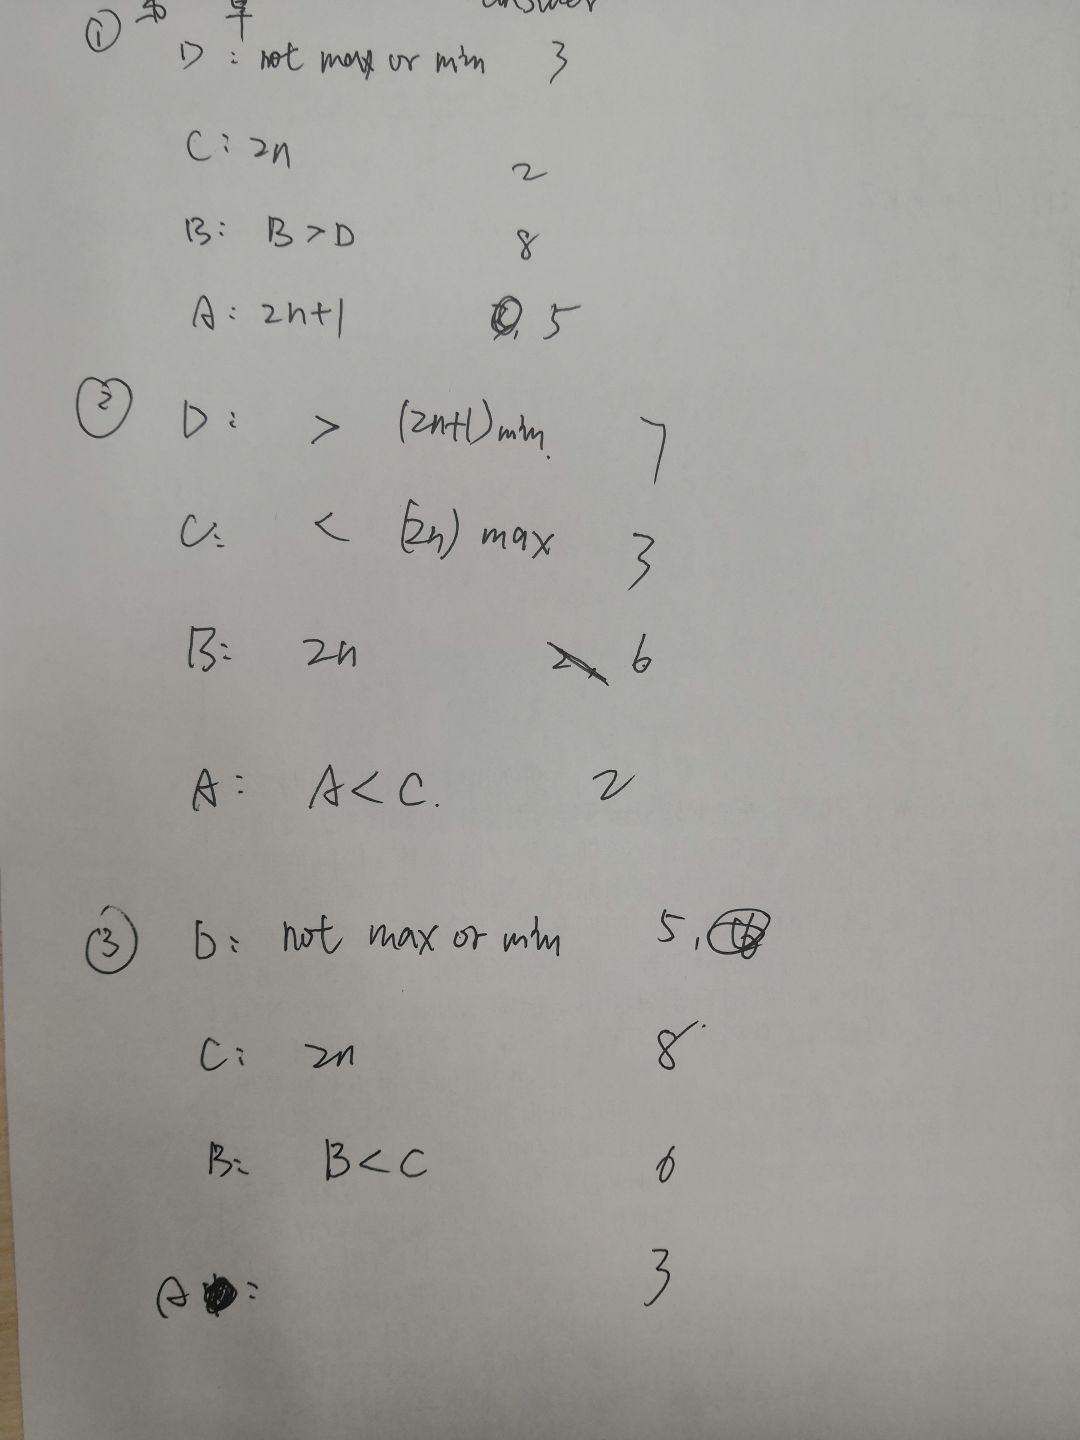 answer
① D: not max or min 3
C: 2n 2
B: B>D 8
A: 2n+1 5
② D: > (2n+1) min. 7
C: < (2n) max 3
B: 2n 2, 6
A: A<C. 2
③ D: not max or min 5,
C: 2n 8
B: B<C 6
A : 3